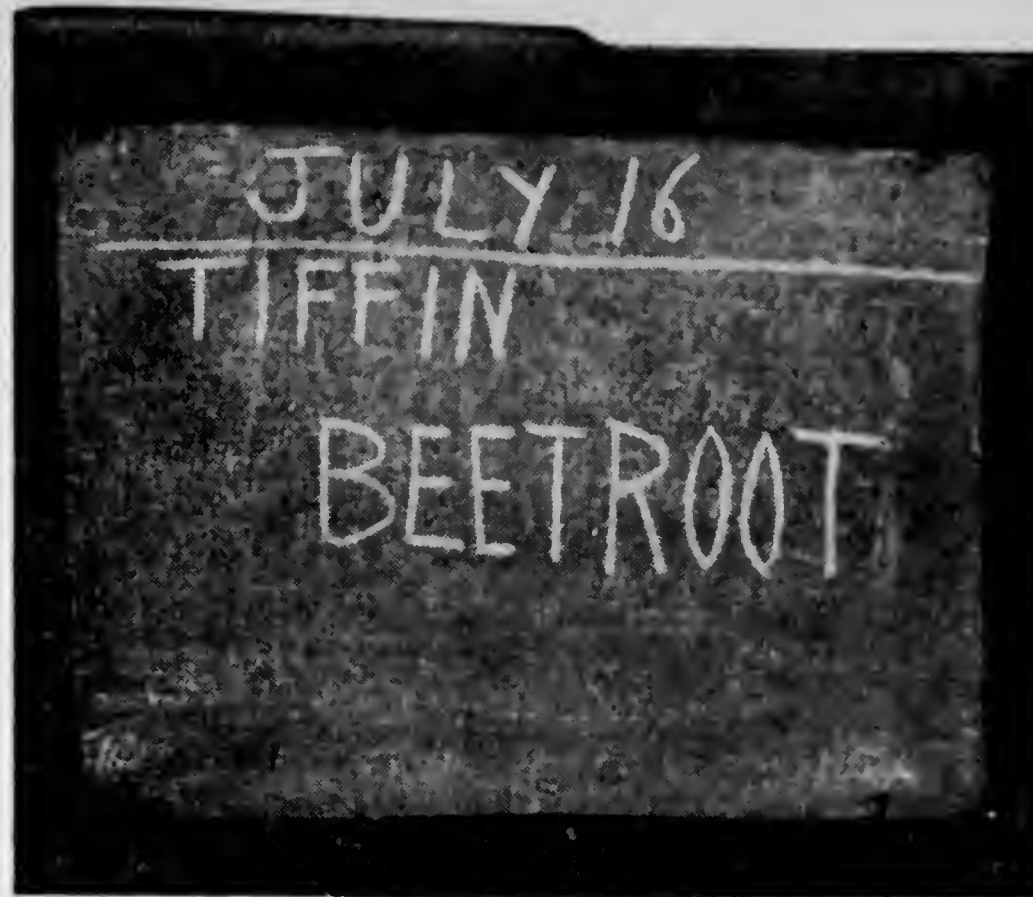 JULY 16
TIFFIN
BEETROOT